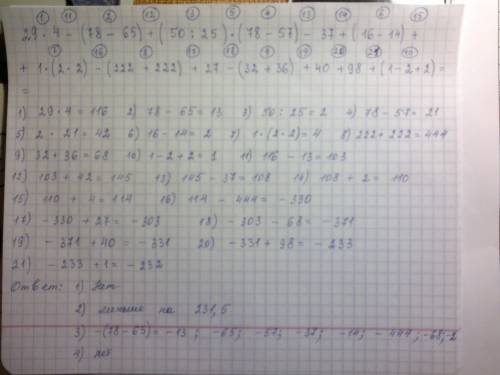 ① ⑪ ② ⑫ ③ ⑤ ④ ⑬ ⑭ ⑥ ⑮
29 · 4 - (78 - 65) + (50 : 25) · (78 - 57) - 37 + (16 - 14) +
+ 1 · (2 · 2) - (222 + 222) + 27 - (32 + 36) + 40 + 98 + (1 - 2 + 2) =
=
1) 29 · 4 = 116 2) 78 - 65 = 13 3) 50 : 25 = 2 4) 78 - 57 = 21
5) 2 · 21 = 42 6) 16 - 14 = 2 7) 1 · (2 · 2) = 4 8) 222 + 222 = 444
9) 32 + 36 = 68 10) 1 - 2 + 2 = 1 11) 116 - 13 = 103
12) 103 + 42 = 145 13) 145 - 37 = 108 14) 108 + 2 = 110
15) 110 + 4 = 114 16) 114 - 444 = - 330
17) - 330 + 27 = - 303 18) - 303 - 68 = - 371
19) - 371 + 40 = - 331 20) - 331 + 98 = - 233
21) - 233 + 1 = - 232
Ответ: 1)
2) меньше на 231,5
3) -(78 - 65) = -13 ; -65 ; -57 ; -37 ; -14 ; - 444 ; -68 ; -2
4) нет